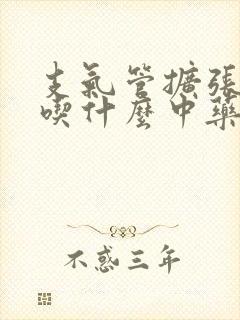 支氣管擴張
喫什麼中藥
不惑三年